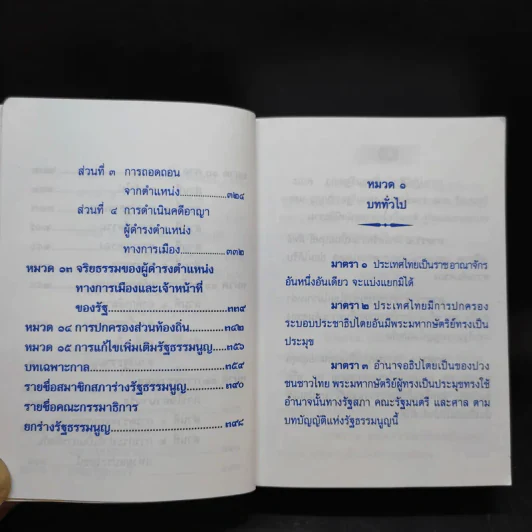 ส่วนที่ ๓ การถอดถอน
จากตำแหน่ง....................๓๒๔
ส่วนที่ ๔ การดำเนินคดีอาญา
ผู้ดำรงตำแหน่ง
ทางการเมือง....................๓๓๒
หมวด ๑๓ จริยธรรมของผู้ดำรงตำแหน่ง
ทางการเมืองและเจ้าหน้าที่
ของรัฐ....................๓๓๙
หมวด ๑๔ การปกครองส่วนท้องถิ่น..........๓๔๒
หมวด ๑๕ การแก้ไขเพิ่มเติมรัฐธรรมนูญ....๓๕๖
บทเฉพาะกาล....................๓๕๙
รายชื่อสมาชิกสภาร่างรัฐธรรมนูญ..........๓๙๐
รายชื่อคณะกรรมาธิการ
ยกร่างรัฐธรรมนูญ....................๓๙๘
หมวด ๑
บททั่วไป
มาตรา ๑ ประเทศไทยเป็นราชอาณาจักร
อันหนึ่งอันเดียว จะแบ่งแยกมิได้
มาตรา ๒ ประเทศไทยมีการปกครอง
ระบอบประชาธิปไตยอันมีพระมหากษัตริย์ทรงเป็น
ประมุข
มาตรา ๓ อำนาจอธิปไตยเป็นของปวง
ชนชาวไทย พระมหากษัตริย์ผู้ทรงเป็นประมุขทรงใช้
อำนาจนั้นทางรัฐสภา คณะรัฐมนตรี และศาล ตาม
บทบัญญัติแห่งรัฐธรรมนูญนี้